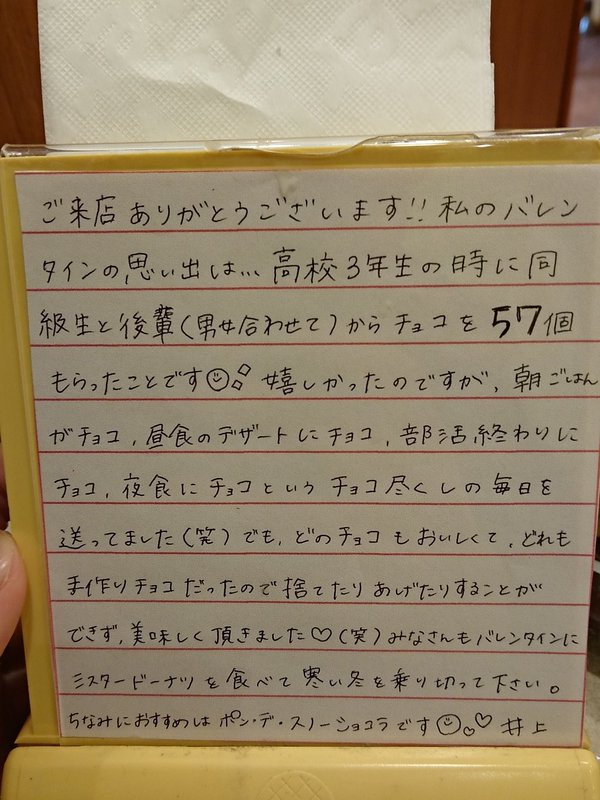 ご来店ありがとうございます!! 私のバレン
タインの思い出は… 高校3年生の時に同
級生と後輩(男女合わせて)からチョコを57個
もらったことです 嬉しかったのですが、朝ごはん
がチョコ、昼食のデザートにチョコ、部活終わりに
チョコ、夜食にチョコというチョコ尽くしの毎日を
送ってました(笑)でも、どのチョコもおいしくて、どれも
手作りチョコだったので捨てたりあげたりすることが
できず、美味しく頂きました♡(笑)みなさんもバレンタインに
ミスタードーナツを食べて寒い冬を乗り切って下さい。
ちなみにおすすめはポン・デ・スノーショコラです☺♡♡ 井上